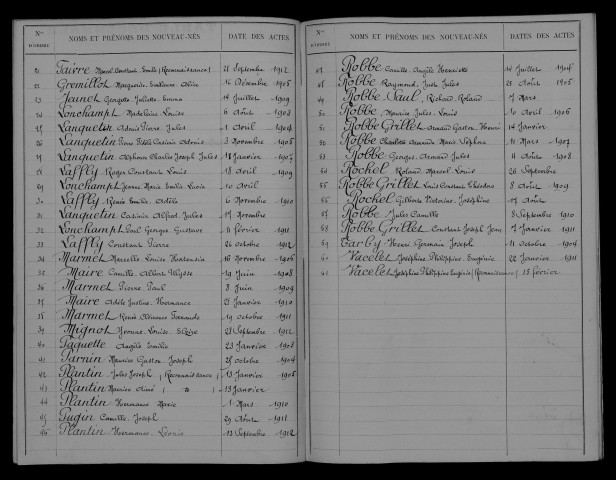 Nos D'ORDRE NOMS ET PRÉNOMS DES NOUVEAU-NÉS DATE DES ACTES
21 Faivre Marcel Constant Emile (Reconnaissance) 21 Septembre 1912
Gremillot Marguerite Emilienne 16 Décembre 1905
23 Jeunet Georgette Juliette Emma 14 Juillet 1909
24 Lonchampt Madeleine Louise 6 Août 1903
25 Lanquetin Pierre Jules 1 Avril 1904
26 Lanquetin Casimir 3 Novembre 1905
27 Lanquetin Alphonse Charles Joseph Jules Janvier 1907
28 Laffly Roger Constant Louis 18 Avril 1909
29 Lonchampt Jeanne Marie Emilie 10 Avril
30 Laffly Renée Emilie Adèle 6 Novembre 1910
31 Lanquetin Casimir Alfred Jules 17 Novembre
32 Lonchampt Paul Georges Gustave 11 Février 1911
33 Laffly Constant Pierre 26 Octobre 1912
34 Marmet Marcelle Louise Hortensia 16 Novembre 1906
35 Maire Camille Albert Ulysse 19 Juin 1908
36 Marmet Pierre Paul 8 Juin 1909
37 Maire Adèle Justine Hermance 21 Janvier 1910
38 Marmet René Fernande 19 Octobre 1911
39 Mignot Yvonne Louise 21 Septembre 1912
40 Paquette Angèle Emilie 23 Janvier 1908
41 Parnin Maurice Gaston Joseph 25 Octobre 1904
42 Plantin Jules Joseph (Reconnaissance) 13 Janvier 1905
43 Plantin Maurice Aimé ( d° ) 13 Janvier
44 Plantin Hermance Marie 1 Mars 1910
45 Pugin Camille Joseph 29 Août 1911
46 Plantin Hermance Léonie 13 Septembre 1912
Nos D'ORDRE NOMS ET PRÉNOMS DES NOUVEAU-NÉS DATES DES ACTES
47 Robbe Camille Angèle Henriette 14 Juillet 1904
48 Robbe Raymond Just Jules 23 Août 1905
49 Robbe Paul Richard Roland 7 Mars
50 Robbe Maurice Jules Louis 10 Avril 1906
51 Robbe Grillet Armand Gaston Henri 14 Janvier
52 Robbe Charlotte Armande Marie 11 Mars 1907
53 Robbe Georges Armand Jules 11 Août 1908
54 Rochel Roland Marcel Louis 26 Septembre
55 Robbe Grillet Louis Constant Théodore 8 Août 1909
56 Rochel Gilberte Victorine Joséphine 17 Août
57 Robbe Jules Camille 8 Septembre 1910
58 Robbe Grillet Constant Joseph 7 Janvier 1911
59 Tarby Henri Germain Joseph 11 Octobre 1904
60 Vacelet Joséphine Philippine Eugénie 22 Janvier 1911
61 Vacelet Joséphine Philippine Eugénie (Reconnaissance) 15 Février